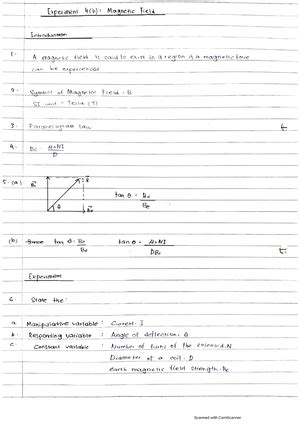 Experiment 4(b): Magnetic Field
Introduction
1. A magnetic field is said to exist in a region if a magnetic force
can be experienced.
2. Symbol of Magnetic Field = B
SI unit = Tesla (T)
3. Parallelogram law
4. Bc = μ₀NI
D
5. (a) B
θ
tan θ = Bc
Be
(b) Since tan θ = Bc tan θ = μ₀NI
Be DBe
Experiment
6. State the:
a. Manipulative variable : Current, I
b. Responding variable : Angle of deflection, θ
c. Constant variable : Number of turns of the solenoid, N
Diameter of a coil, D
earth magnetic field strength, Be
Scanned with CamScanner